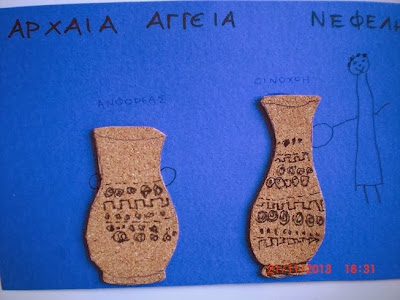 ΑΡΧΑΙΑ ΑΓΓΕΙΑ ΝΕΦΕΛΗ
ΑΜΦΟΡΕΑΣ
ΟΙΝΟΧΟΗ
2013 16:31